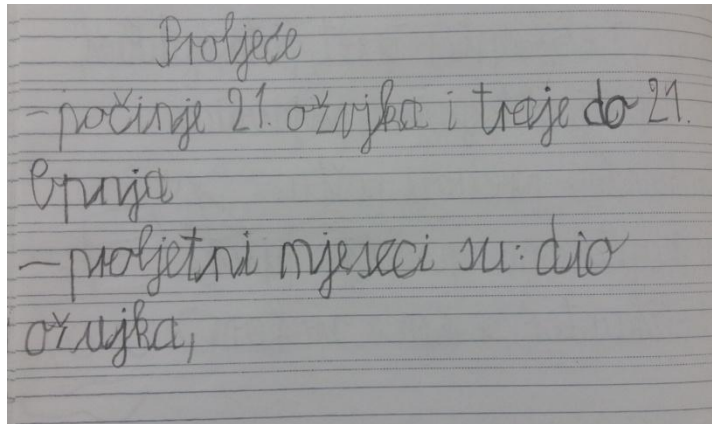 Proljeće
-počinje 21. ožujka i traje do 21.
lipnja
-proljetni mjeseci su: dio
ožujka,